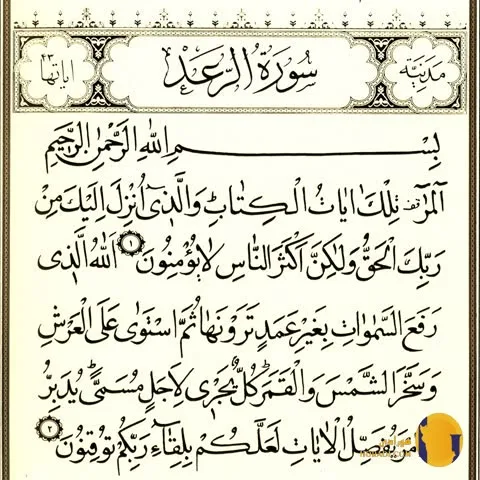 مدنیّة سُورَةُ الرَّعَدِ ایاتها ۴۳
بِسْمِ اللّٰهِ الرَّحْمٰنِ الرَّحِیمِ
الٓمٓرٰ قف تِلْكَ ایَاتُ الْكِتَابِ وَالَّذٖی اُنْزِلَ اِلَیْكَ مِنْ
رَبِّكَ الْحَقُّ وَلٰكِنَّ اَكْثَرَ النَّاسِ لَایُؤْمِنُونَ ۱ اَللّٰهُ الَّذٖی
رَفَعَ السَّمٰوَاتِ بِغَیْرِ عَمَدٍ تَرَوْنَهَا ثُمَّ اسْتَوٰی عَلَی الْعَرْشِ
وَسَخَّرَ الشَّمْسَ وَالْقَمَرَ كُلٌّ یَجْرٖی لِاَجَلٍ مُسَمًّی یُدَبِّرُ
مْرَ یُفَصِّلُ الْاٰیَاتِ لَعَلَّكُمْ بِلِقَٓاءِ رَبِّكُمْ تُوقِنُونَ ۲